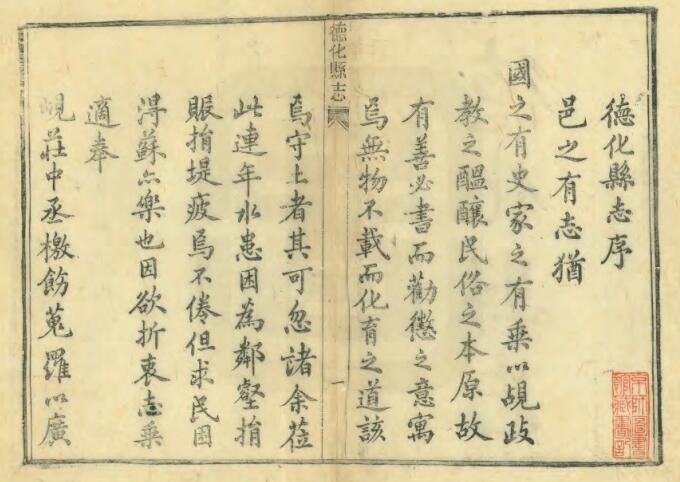 德化縣志序
邑之有志猶
國之有史家之有乘以覘政
教之醞釀民俗之本原故
有善必書而勸懲之意寓
焉無物不載而化育之道該
德化縣志
一
焉守土者其可忽諸余蒞
此連年水患因為鄰壑捐
賑捐堤疲焉不倦但求民困
得蘇亦樂也因欲折衷志乘
適奉
峴莊中丞檄飭蒐羅以廣